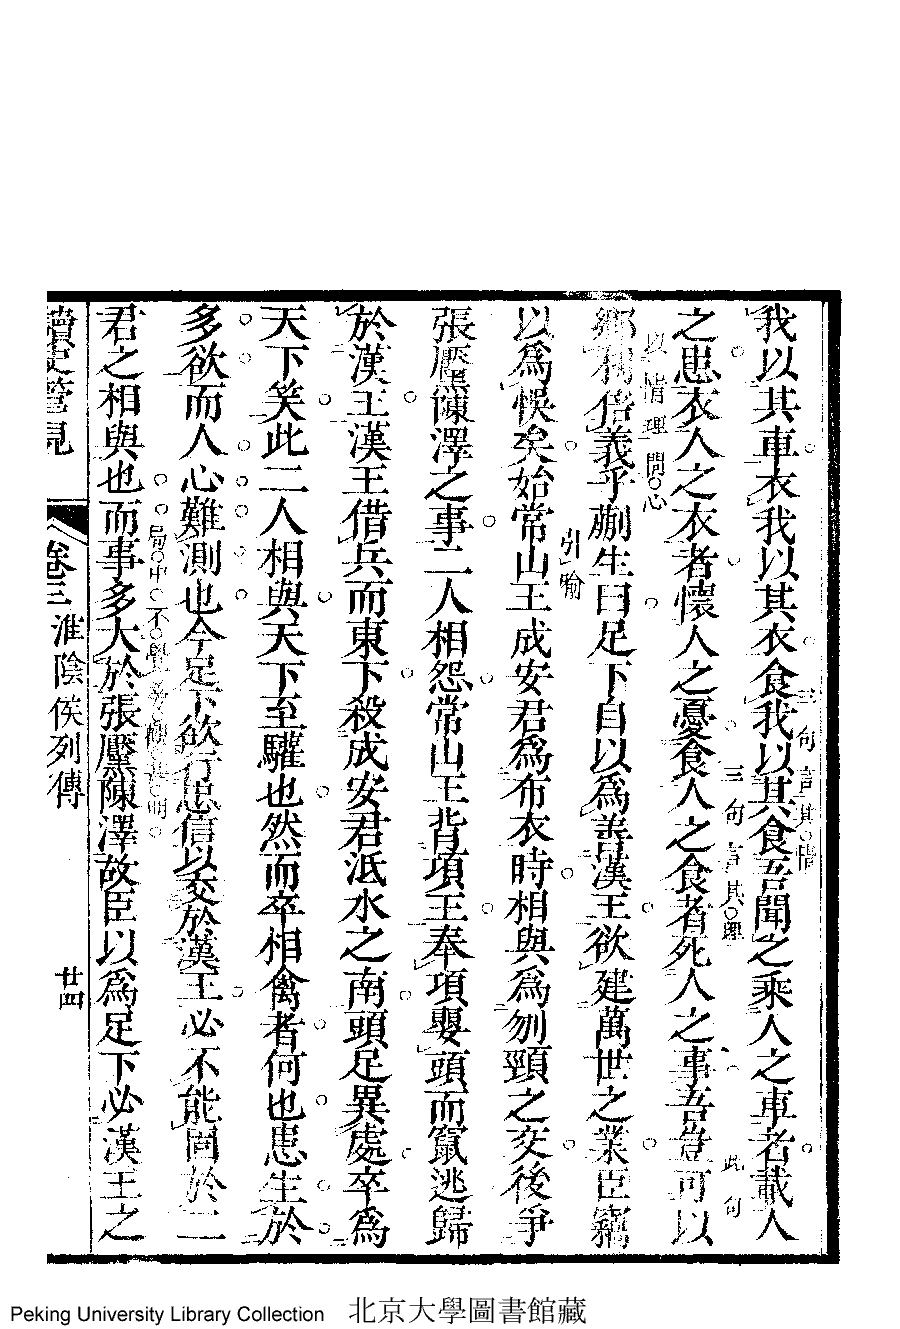 我以其車衣我以其衣食我以其食吾聞之乘人之車者載人
三句言其情
之患衣人之衣者懷人之憂食人之食者死人之事吾豈可以
三句言其理
此句
以情理問心
鄉利倍義乎蒯生曰足下自以為善漢王欲建萬世之業臣竊
引喻
以爲悞矣始常山王成安君爲布衣時相與爲刎頸之交後爭
張黶陳澤之事二人相怨常山王背項王奉項嬰頭而竄逃歸
於漢王漢王借兵而東下殺成安君泜水之南頭足異處卒爲
天下笑此二人相與天下至驩也然而卒相禽者何也患生於
多欲而人心難測也今足下欲行忠信以交於漢王必不能固於二
局中不覺
明
君之相與也而事多大於張黶陳澤故臣以爲足下必漢王之
讀史管見
卷三
淮陰侯列傳
廿四
Peking University Library Collection 北京大學圖書館藏